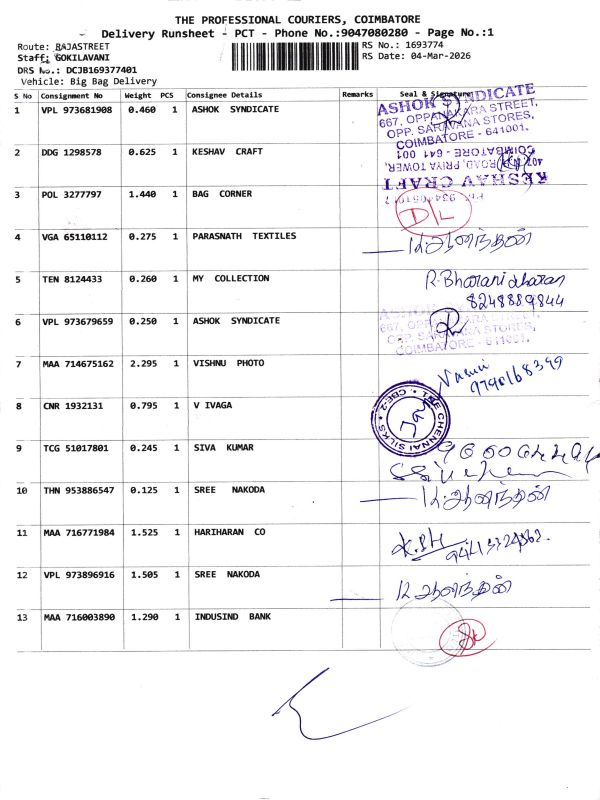 THE PROFESSIONAL COURIERS, COIMBATORE
Delivery Runsheet - PCT - Phone No.:9047080280 - Page No.:1
Route: RAJASTREET
RS No.: 1693774
Staff: GOKILAVANI
RS Date: 04-Mar-2026
DRS No.: DCJB169377401
Vehicle: Big Bag Delivery
S No Consignment No Weight PCS Consignee Details Remarks Seal & Signature
1 VPL 973681908 0.460 1 ASHOK SYNDICATE
ASHOK SYNDICATE
667, OPPANAKARA STREET,
OPP. SARAVANA STORES,
COIMBATORE - 641001.
2 DDG 1298578 0.625 1 KESHAV CRAFT
KESHAV CRAFT
ROAD, PRIYA TOWER,
COIMBATORE - 641 001
3 POL 3277797 1.440 1 BAG CORNER
D/L
4 VGA 65110112 0.275 1 PARASNATH TEXTILES
ஆனந்தன்
5 TEN 8124433 0.260 1 MY COLLECTION
R. Bharanidharan
8248889844
6 VPL 973679659 0.250 1 ASHOK SYNDICATE
OPP. SARAVANA STORES,
COIMBATORE - 641001.
7 MAA 714675162 2.295 1 VISHNU PHOTO
9790168399
8 CNR 1932131 0.795 1 V IVAGA
THE CHENNAI SILKS
CBE-2
9 TCG 51017801 0.245 1 SIVA KUMAR
10 THN 953886547 0.125 1 SREE NAKODA
ஆனந்தன்
11 MAA 716771984 1.525 1 HARIHARAN CO
12 VPL 973896916 1.505 1 SREE NAKODA
ஆனந்தன்
13 MAA 716003890 1.290 1 INDUSIND BANK